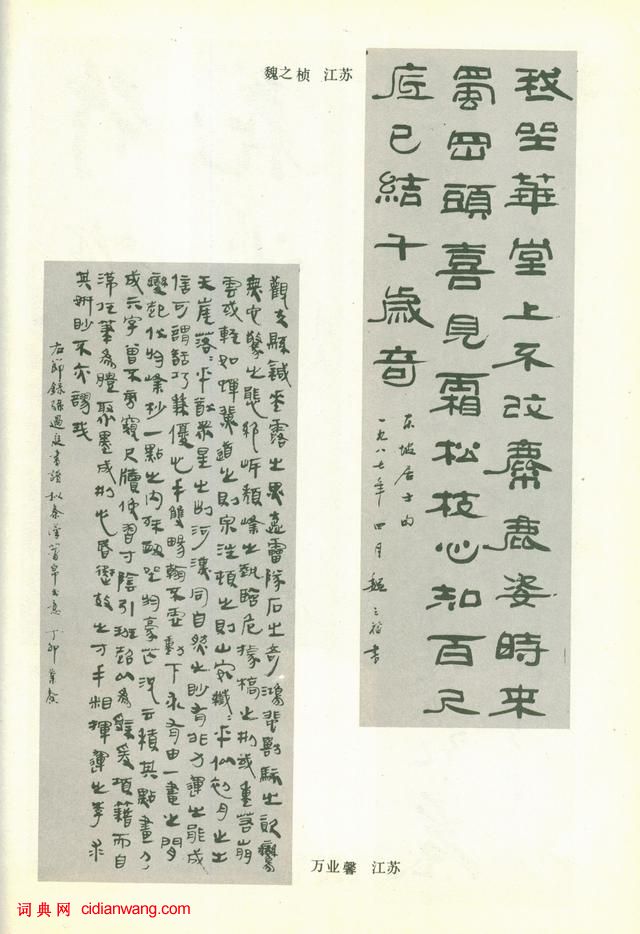 魏之桢 江苏
我坐華堂上不改麋鹿姿時來
蜀岡頭喜見霜松枝心知百尺
底已結千歲奇
东坡居士句
一九八七年四月魏之禎書
觀夫懸鍼垂露之異奔雷隊石之奇鴻飛獸駭之資鸞
舞蛇驚之態絕岸頹峰之勢臨危據槁之形或重若崩
雲或輕如蟬翼導之則泉注頓之則山安纖纖乎似初月之出
天崖落落乎猶衆星之列河漢同自然之妙有非力運之能成
信可謂智巧兼優心手雙暢翰不虛動下必有由一畫之間
變起伏於峰杪一點之內殊衄挫於豪芒況云積其點畫乃
成其字曾不旁窺尺牘俯習寸陰引班超以為辭援項籍而自
滿任筆為體聚墨成形心昏擬效之方手迷揮運之理求
其妍妙不亦謬哉
右節錄孫過庭書譜拟秦漢簡帛書意 丁卯 業馨
万业馨 江苏
词典网 cidianwang.com